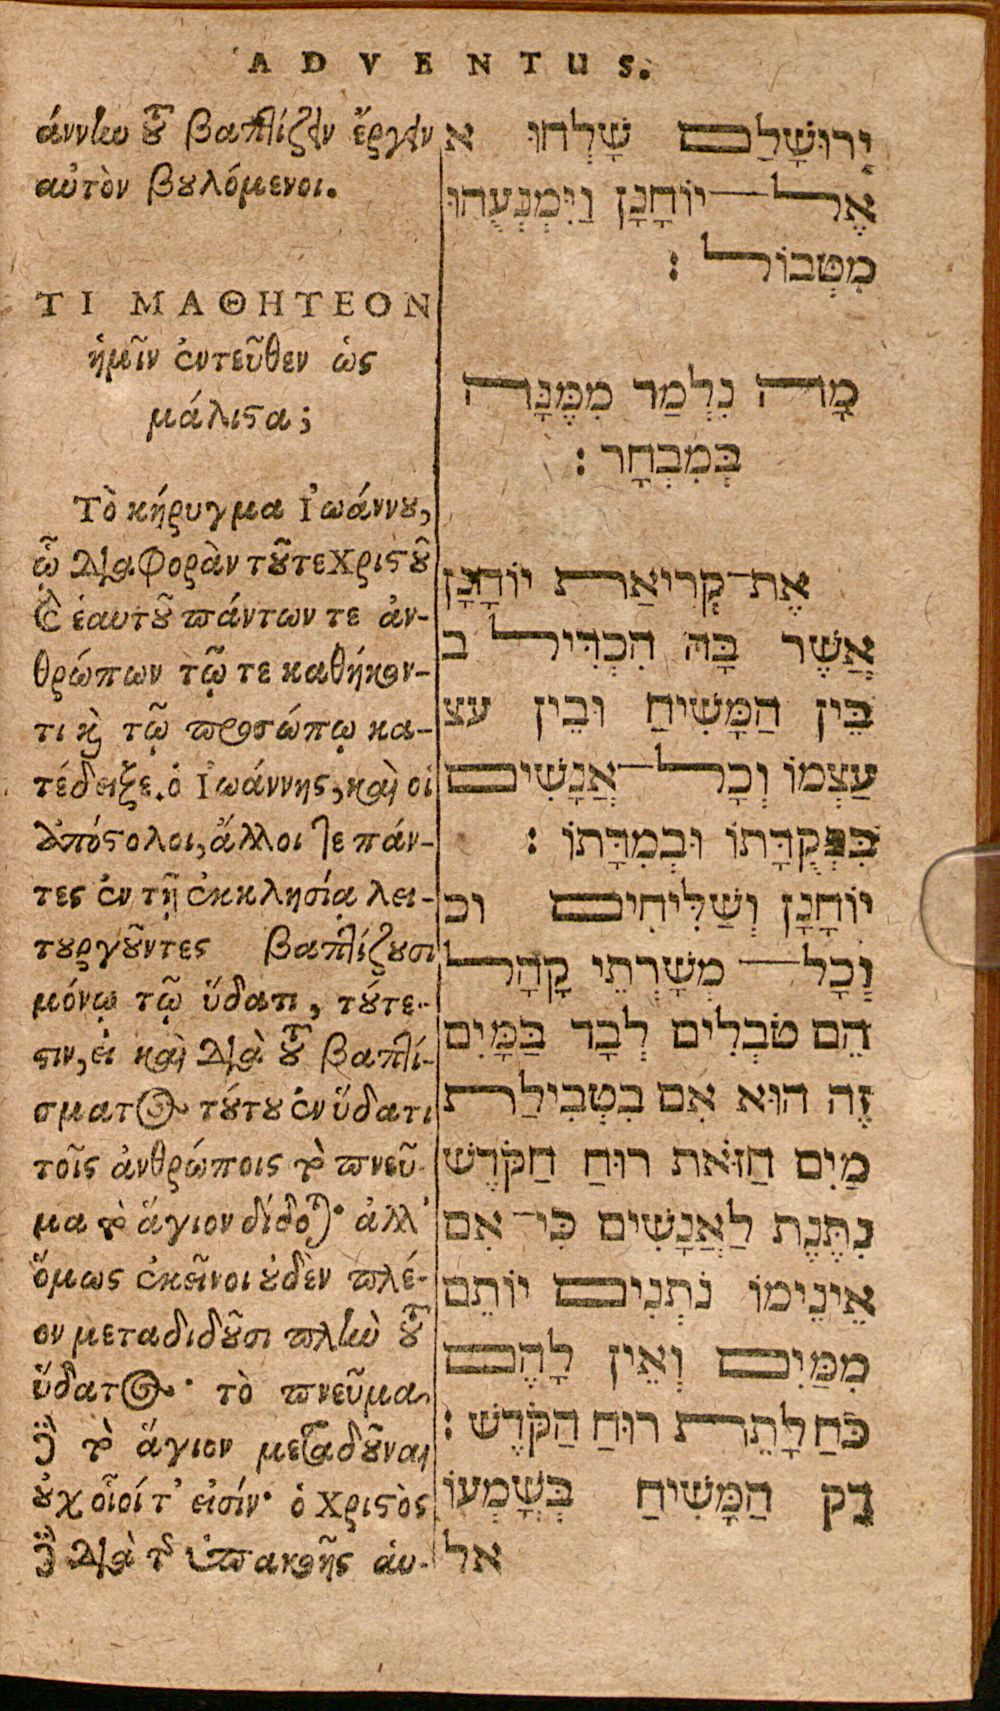 ADVENTUS.
άννȣ τȣ͂ βαπτίζειν ἔργειν
αὐτὸν βȣλόμενοι.
ΤΙ ΜΑΘΗΤΕΟΝ
ἡμῖν ἐντεῦθεν ὡς
μάλιϛα;
Τὸ κήρυγμα Ἰωάννȣ,
ᾧ διαφορὰν τȣ͂ τε Χριϛȣ͂
καὶ ἑαυτȣ͂ πάντων τε ἀν-
θρώπων τῷ τε καθήκον-
τι καὶ τῷ προσώπῳ κα-
τέδειξε. ὁ Ἰωάννης, καὶ οἱ
ἀπόϛολοι, ἄλλοι τε πάν-
τες ἐν τῇ ἐκκλησίᾳ λει-
τȣργȣ͂ντες βαπτίζȣσι
μόνῳ τῷ ὕδατι, τȣ́τε-
ϛιν, εἰ καὶ διὰ τȣ͂ βαπτί-
σματος τȣ́τȣ ἐν ὕδατι
τοῖς ἀνθρώποις τὸ πνεῦ-
μα τὸ ἅγιον δίδοται· ἀλλ'
ὅμως ἐκεῖνοι ȣ̓δὲν πλέ-
ον μεταδιδȣ͂σι πλὴν τȣ͂
ὕδατος· τὸ πνεῦμα
δὲ τὸ ἅγιον μεταδȣ͂ναι
ȣ̓χ οἷοί τ' εἰσίν· ὁ Χριϛὸς
δὲ διὰ τῆς ὑπακοῆς αὑ-
יְרוּשָׁלַם שָׁלְחוּ א
אֶל־יוֹחָנָן וַיִּמְנָעֻהוּ
מִטְּבוֹל :
מָה נִלְמַד מִמֶּנָּה
בְּמִבְחָר :
אֶת־קְרִיאַת יוֹחָנָן
אֲשֶׁר בָּהּ הִכְדִּיל ב
בֵּין הַמָּשִׁיחַ וּבֵין עצ
עַצְמוֹ וְכָל־אֲנָשִׁים
בִּפְקֻדָּתוֹ וּבְמִדָּתוֹ :
יוֹחָנָן וְשַׁלִּיחִים וכ
וְכָל־מְשָׁרְתֵי קָהָל
הֵם טֹבְלִים לְבָד בַּמָּיִם
זֶה הוּא אִם בִּטְבִילַת
מַיִם הַזֹּאת רוּחַ הַקֹּדֶשׁ
נִתֶּנֶת לַאֲנָשִׁים כִּי־אִם
אֵינֵימוֹ נֹתְנִים יוֹתֵם
מִמַּיִם וְאֵין לָהֶם
כֹּחַ לָתֵת רוּחַ הַקֹּדֶשׁ :
רַק הַמָּשִׁיחַ בְּשָׁמְעוֹ
אל